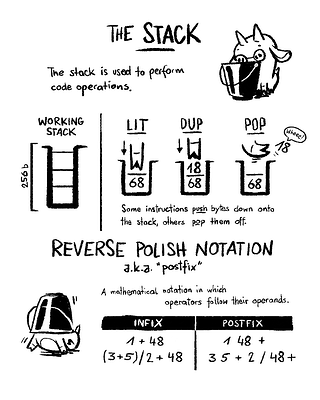 THE STACK
The stack is used to perform
code operations.
WORKING
STACK
256 b
LIT
68
DUP
18
68
POP
68
18
whee!
Some instructions push bytes down onto
the stack, others pop them off.
REVERSE POLISH NOTATION
a.k.a. "postfix"
A mathematical notation in which
operators follow their operands.
INFIX POSTFIX
1 + 48 1 48 +
(3+5)/2 + 48 3 5 + 2 / 48 +